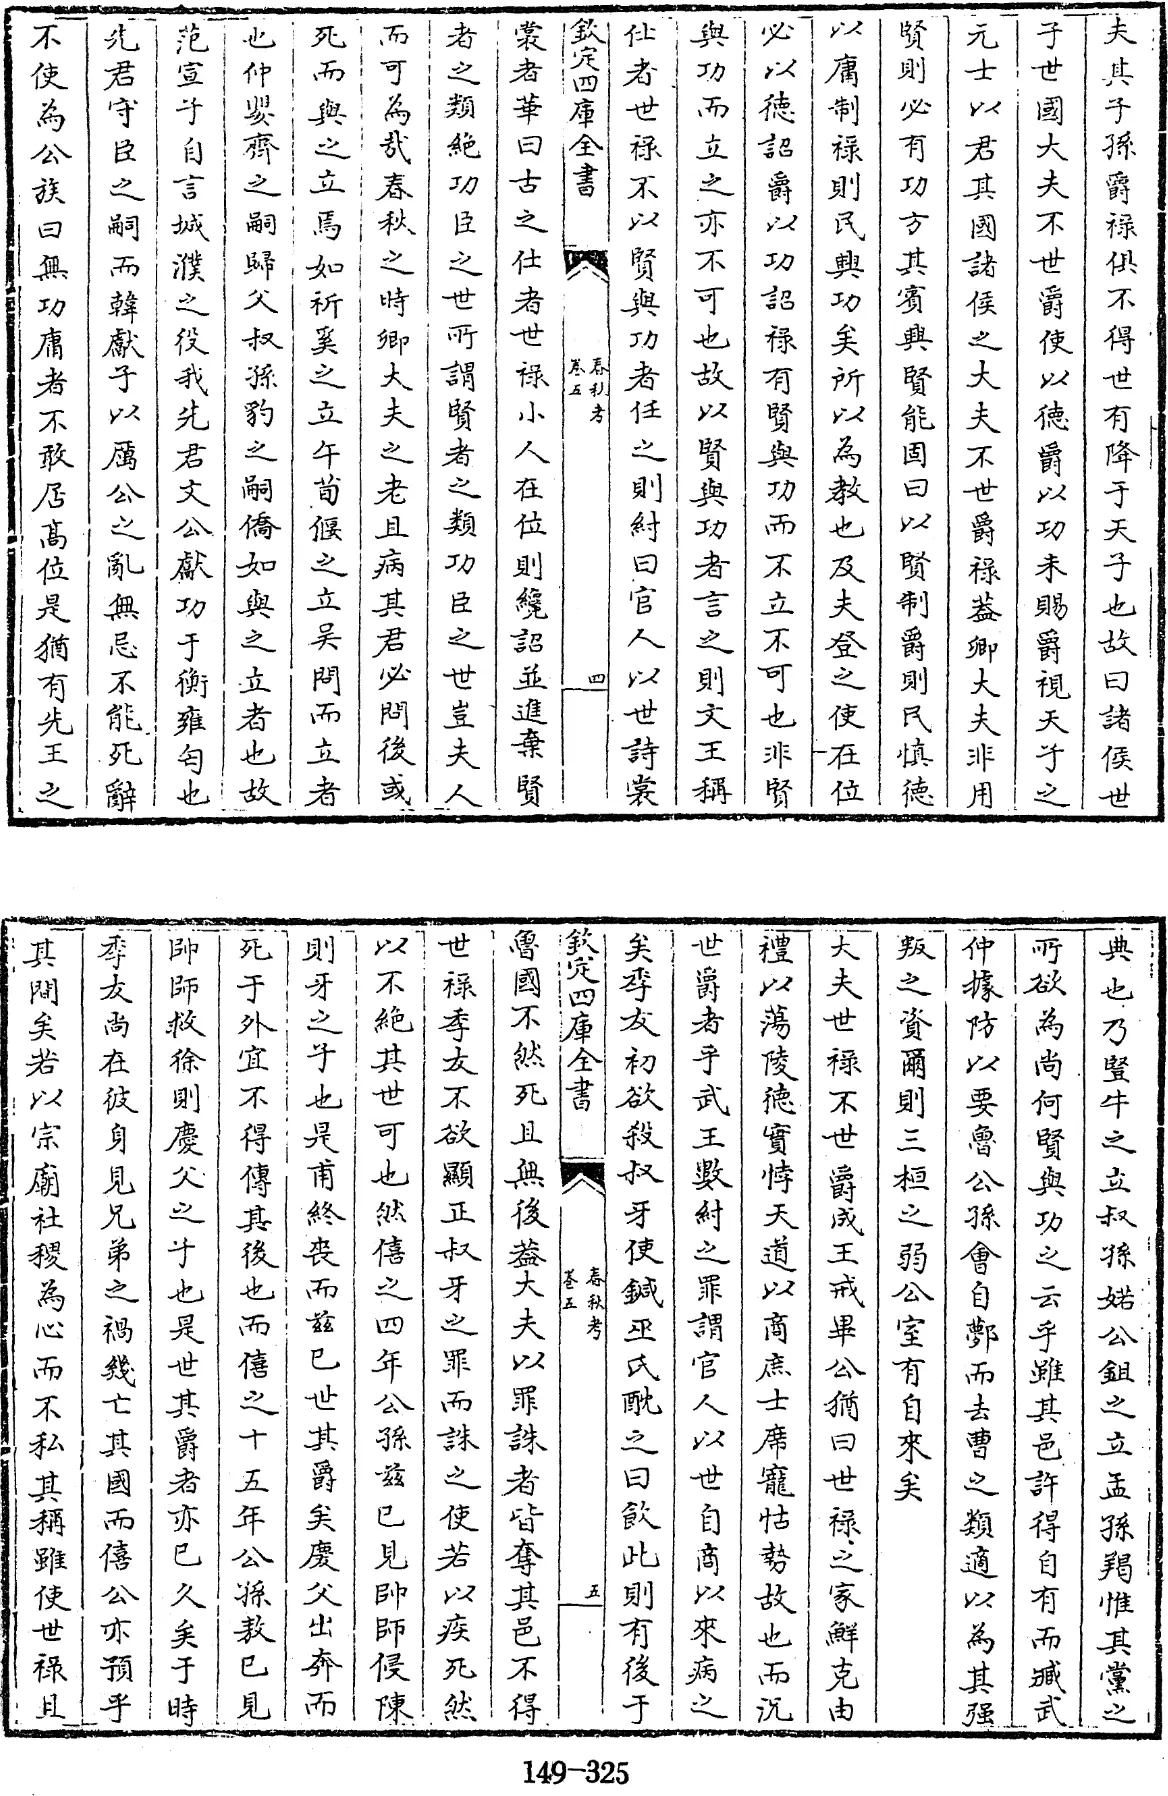 夫其子孫爵祿俱不得世有降于天子也故曰諸侯世
子世國大夫不世爵使以德爵以功未賜爵視天子之
元士以君其國諸侯之大夫不世爵祿葢卿大夫非用
賢則必有功方其賓興賢能固曰以賢制爵則民慎德
以庸制祿則民興功矣所以為教也及夫登之使在位
必以德詔爵以功詔祿有賢與功而不立不可也非賢
與功而立之亦不可也故以賢與功者言之則文王稱
仕者世祿不以賢與功者任之則紂曰官人以世詩裳
欽定四庫全書
春秋考
卷五
四
裳者華曰古之仕者世祿小人在位則䜛諂並進棄賢
者之類絶功臣之世所謂賢者之類功臣之世豈夫人
而可為哉春秋之時卿大夫之老且病其君必問後或
死而與之立焉如祈奚之立午荀偃之立吴問而立者
也仲嬰齊之嗣歸父叔孫豹之嗣僑如與之立者也故
范宣子自言城濮之役我先君文公獻功于衡雍匄也
先君守臣之嗣而韓獻子以厲公之亂無忌不能死辭
不使為公族曰無功庸者不敢居髙位是猶有先王之
典也乃豎牛之立叔孫婼公鉏之立孟孫羯惟其黨之
所欲為尚何賢與功之云乎雖其邑許得自有而臧武
仲據防以要魯公孫會自鄸而去曹之類適以為其强
叛之資爾則三桓之弱公室有自來矣
大夫世祿不世爵成王戒畢公猶曰世祿之家鮮克由
禮以蕩陵德實悖天道以商庶士席寵怙勢故也而沉
世爵者乎武王數紂之罪謂官人以世自商以來病之
矣季友初欲殺叔牙使鍼巫氏酖之曰飲此則有後于
欽定四庫全書
春秋考
卷五
五
魯國不然死且無後葢大夫以罪誅者皆奪其邑不得
世祿季友不欲顯正叔牙之罪而誅之使若以疾死然
以不絶其世可也然僖之四年公孫兹已見帥師侵陳
則牙之子也是甫終丧而兹已世其爵矣慶父出奔而
死于外宜不得傳其後也而僖之十五年公孫敖已見
帥師救徐則慶父之子也是世其爵者亦已久矣于時
季友尚在彼身見兄弟之禍幾亡其國而僖公亦預乎
其間矣若以宗廟社稷為心而不私其稱雖使世祿且
149-325